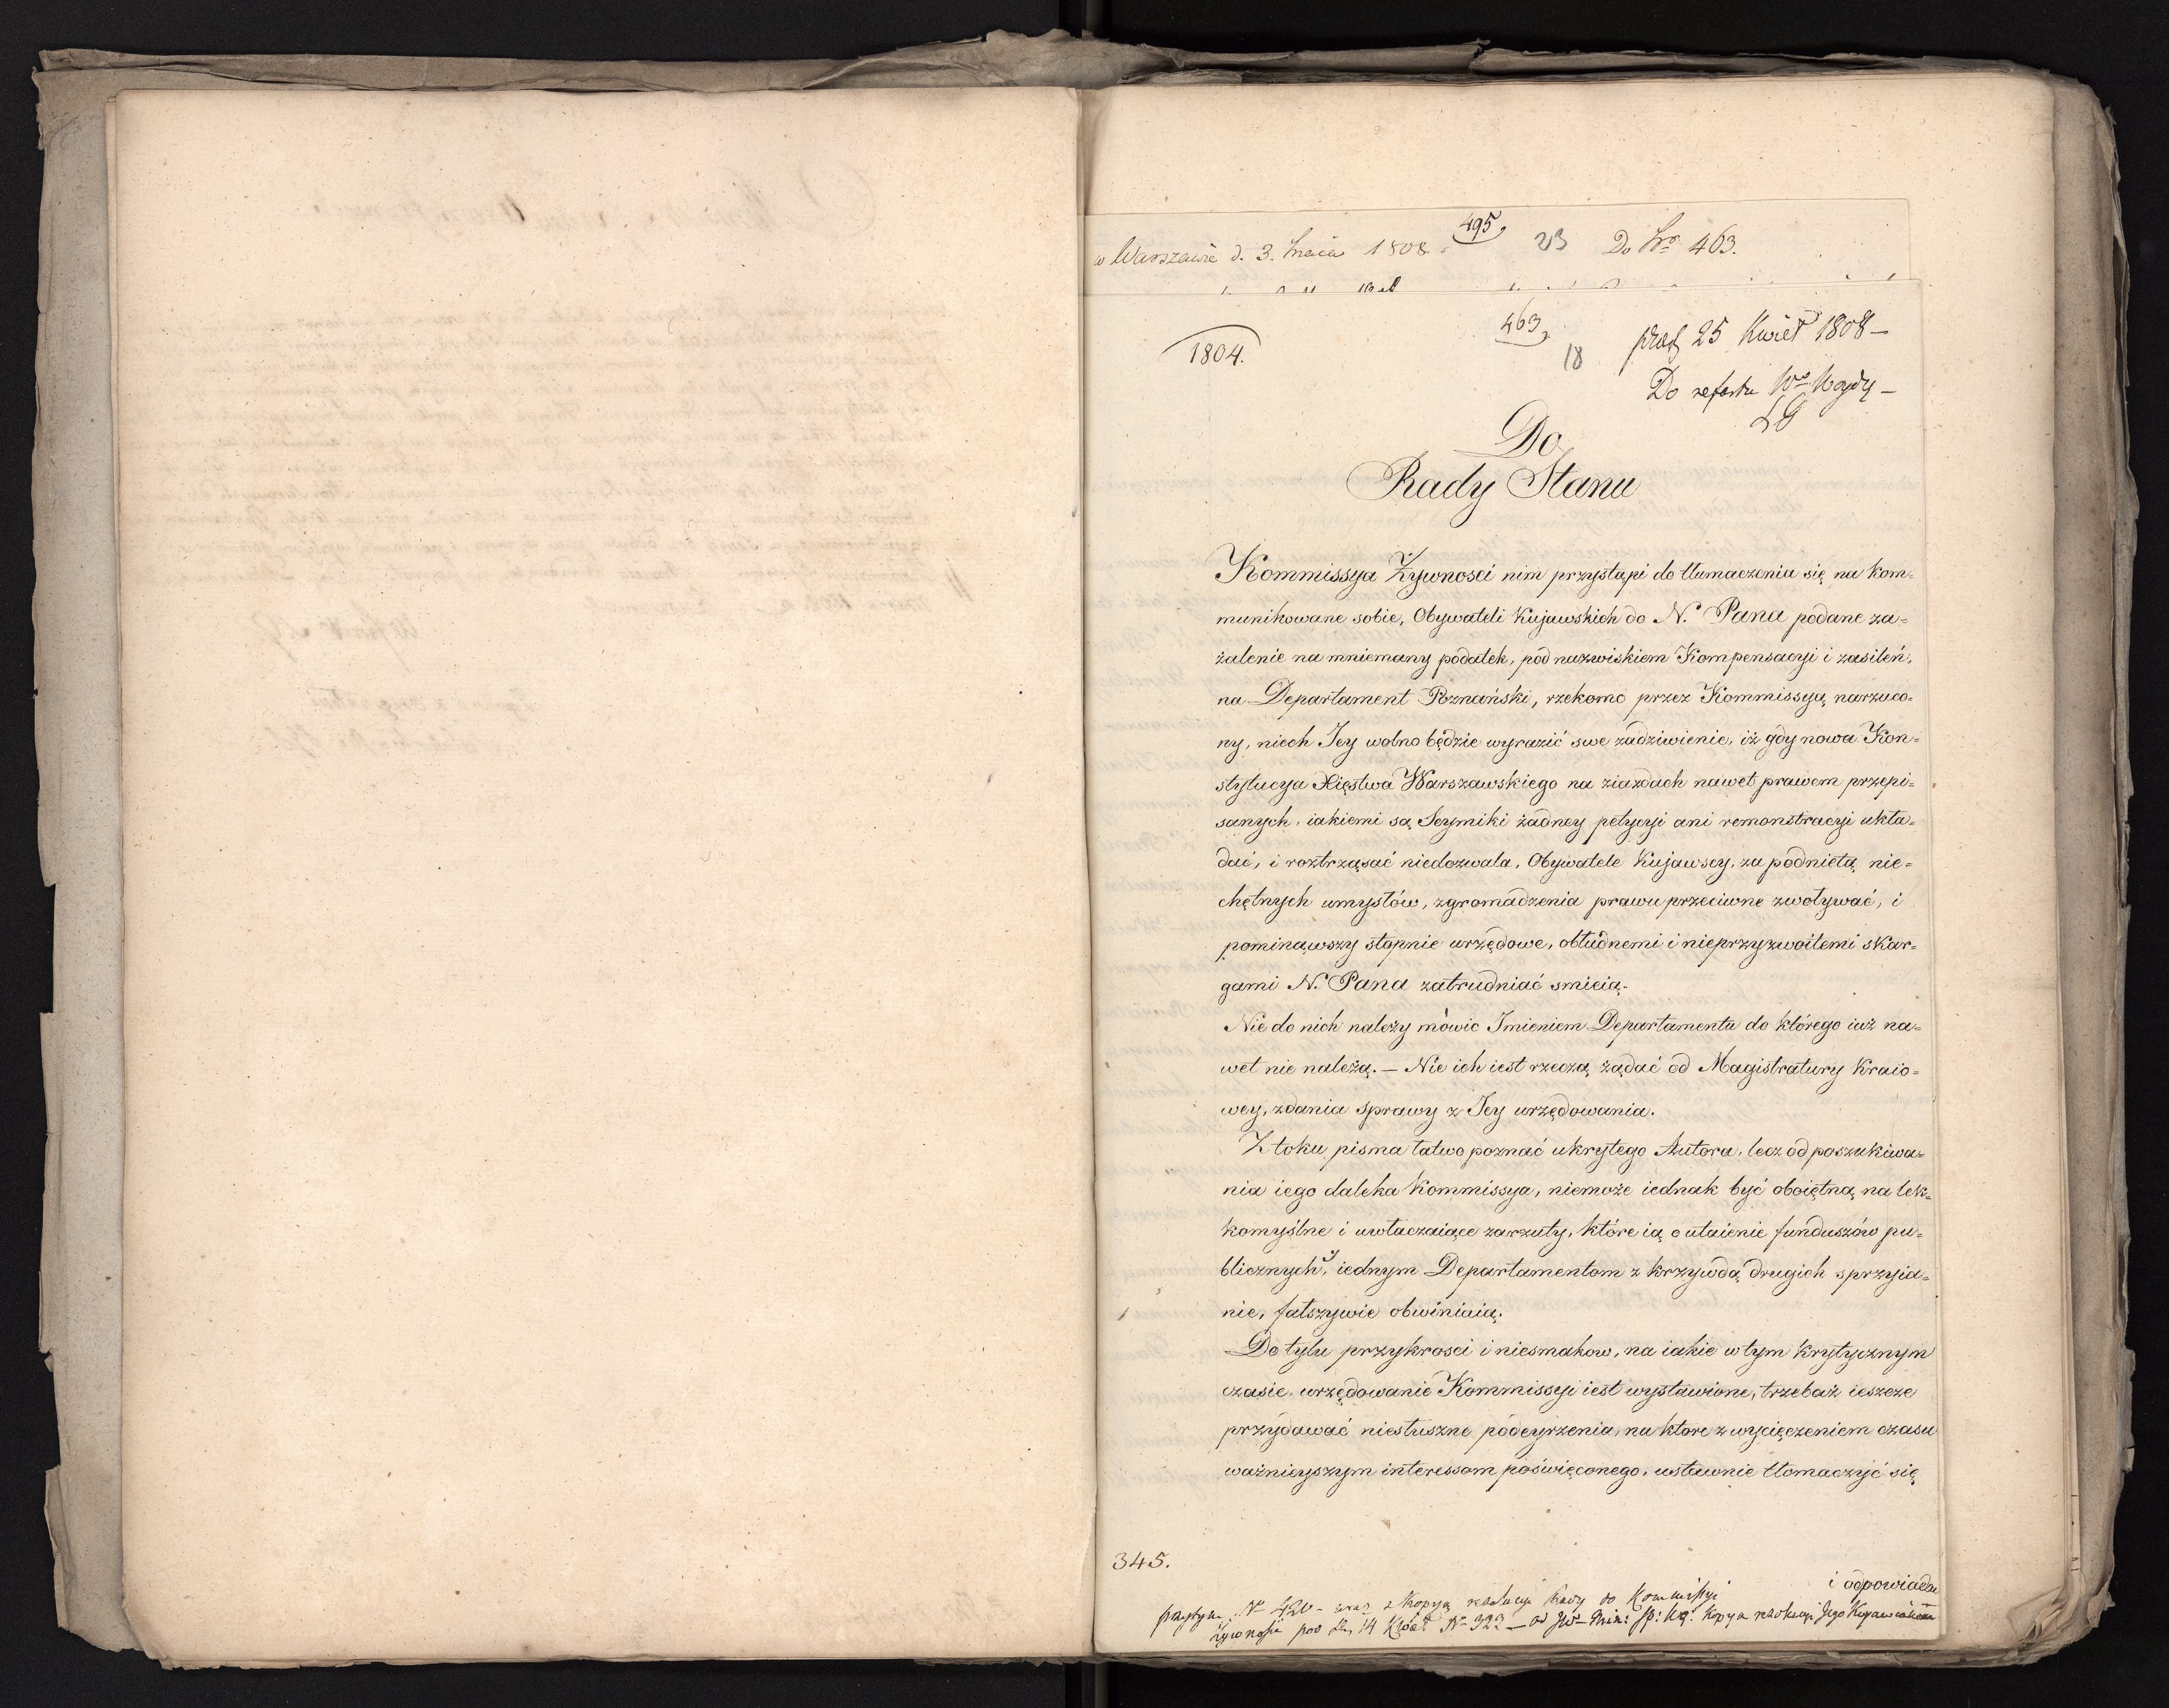 495
w Warszawie d. 3. Maia 1808. 23 Do Nro 463.
463
1804. 18 praes 25 Kwiet 1808 —
Do referatu
LG
Do
Rady Stanu
Kommissya Żywnosci nim przystąpi do tłumaczenia się na kom=
munikowane sobie, Obywateli Kujawskich do N. Pana podane za=
żalenie na mniemany podatek, pod nazwiskiem Kompensacyi i zasileń,
na Departament Poznański, rzekomo przez Kommissyą narzuco=
ny, niech Jey wolno będzie wyrazić swe zadziwienie, iż gdy nowa Kon=
stytucya Xięstwa Warszawskiego na ziazdach nawet prawem przepi=
sanych, iakiemi są Seymiki żadney petycyi ani remonstracyi ukła=
dać, i roztrząsać niedozwala, Obywatele Kujawscy, za podnietą nie=
chętnych umysłów, zgromadzenia prawu przeciwne zwoływać, i
pominąwszy stopnie urzędowe, obłudnemi i nieprzyzwoitemi skar=
gami N. Pana zatrudniać smieią.
Nie do nich należy mówic Imieniem Departamentu do którego iuż na=
wet nie należą. — Nie ich iest rzeczą żądać od Magistratury Kraio=
wey, zdania sprawy z Jey urzędowania.
Z toku pisma łatwo poznać ukrytego Autora, lecz od poszukiwa=
nia iego daleka Kommissya, niemoże iednak być oboiętną na lek=
komyślne i uwłaczaiące zarzuty, które ią o utaienie funduszów pu=
blicznych, y iednym Departamentom z krzywdą drugich sprzyia=
nie, fałszywie obwiniaią.
Do tylu przykrosci i niesmakow, na iakie w tym krytycznym
czasie, urzędowanie Kommissyi iest wystawione, trzebaż ieszcze
przydawać niesłuszne podeyrzenia, na ktore z wycięczeniem czasu
ważnieyszym interessom poświęconego, ustawnie tłomaczyć się
345.
i odpowiada
Nr 420 — wraz z Kopyą rezolucyi Rady do Kommissyi
Żywnosci pod dn. 14 Kwiet Nr 323 — od JW Min: Sp: Wę: Kopya rezolucyi Jego